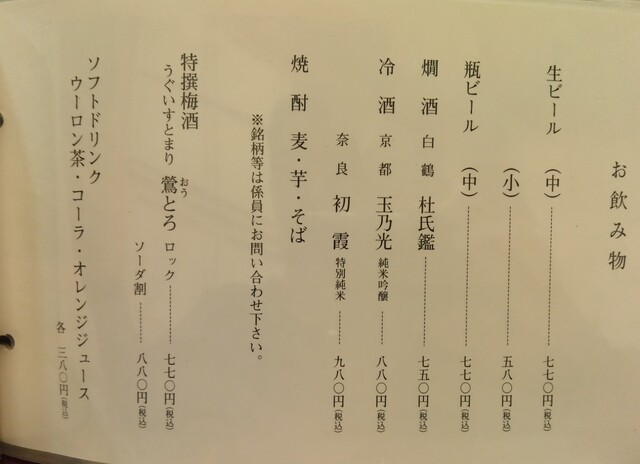 お飲み物
生ビール（中）………七七〇円（税込）
（小）………五八〇円（税込）
瓶ビール（中）………七七〇円（税込）
燗酒 白鶴 杜氏鑑………七五〇円（税込）
冷酒 京都 玉乃光 純米吟醸……八八〇円（税込）
奈良 初霞 特別純米……九八〇円（税込）
焼酎 麦・芋・そば
※銘柄等は係員にお問い合わせ下さい。
特撰梅酒
うぐいすとまり 鶯とろ おう ロック………七七〇円（税込）
ソーダ割………八八〇円（税込）
ソフトドリンク
ウーロン茶・コーラ・オレンジジュース
各 三八〇円（税込）